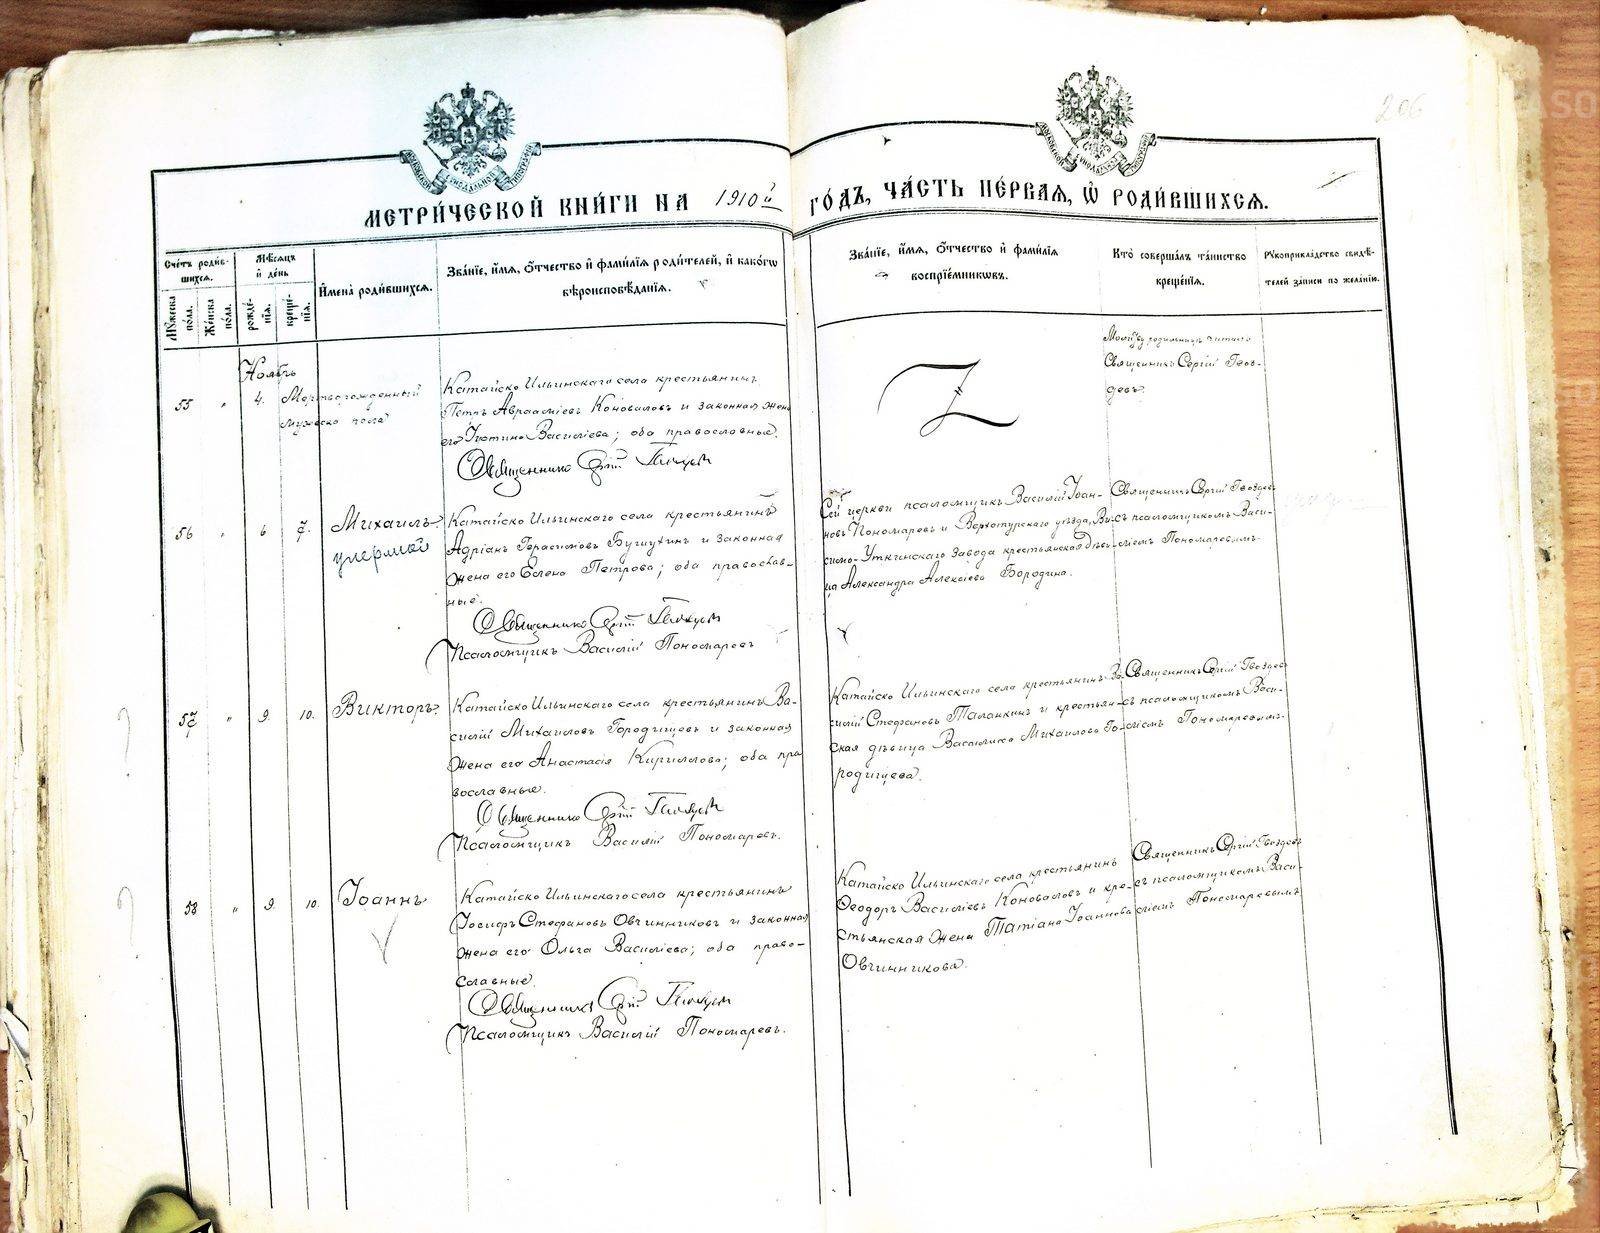 206
МЕТРИ́ЧЕСКОЙ КНИ́ГИ НА 1910й ГО́ДЪ, ЧА́СТЬ ПЕ́РВАЯ, Ѡ РОДИ́ВШИХСЯ.
Сче́тъ роди́в-
шихся.
Мꙋжеска по́ла.
Же́нска по́ла.
Мѣ́сяцъ
и де́нь
рожде́-
нїя.
креще́-
нїя.
Имена̀ роди́вшихся.
Зва́нїе, и́мя, о́тчество и фами́лїя роди́телей, и како́гѡ
вѣроисповѣ́данїя.
Зва́нїе, и́мя, о́тчество и фами́лїя
воспрїе́мникѡвъ.
Кто̀ соверша́лъ та́инство
креще́нїя.
Рꙋкоприкла́дство свидѣ́-
телей за́писи по жела́нїю.
Ноябрь
55 " 4.
Мертворожденный
мужеско пола
Катайско Ильинскаго села крестьянинъ
Петръ Авраамiевъ Коноваловъ и законная жена
его Iустина Василiева; оба православные.
Священникъ Сергiй Гвоздевъ
Священникъ Сергiй Гвоз-
девъ.
56 " 6 7.
Михаилъ.
умерший
Катайско Ильинскаго села крестьянинъ
Адрiанъ Герасимовъ и законная
жена его Елена Петрова; оба православ-
ные.
Священникъ Сергiй Гвоздевъ
Псаломщикъ Василiй Пономаревъ
Сей церкви псаломщикъ Василiй Iоан-
новъ Пономаревъ и Верхотурскаго уѣзда, Ви-
симо-Уткинскаго завода крестьянская дѣви-
ца Александра Алексiева Бородина.
Священникъ Сергiй Гвоздевъ
съ псаломщикомъ Васи-
лiемъ Пономаревымъ.
57 " 9. 10.
Викторъ.
Катайско Ильинскаго села крестьянинъ Ва-
силiй Михаиловъ Городищевъ и законная
жена его Анастасiя Кириллова; оба пра
вославные.
Священникъ Сергiй Гвоздевъ
Псаломщикъ Василiй Пономаревъ.
Катайско Ильинскаго села крестьянинъ Ва-
силiй Стефановъ Таланкинъ и крестьян-
ская дѣвица Василиса Михаилова Го-
родищева.
Священникъ Сергiй Гвоздевъ
съ псаломщикомъ Васи-
лiемъ Пономаревымъ.
58 " 9. 10.
Iоаннъ
Катайско Ильинскаго села крестьянинъ
Iосифъ Стефановъ Овчинниковъ и законная
жена его Ольга Василiева; оба право-
славные.
Священникъ Сергiй Гвоздевъ
Псаломщикъ Василiй Пономаревъ.
Катайско Ильинскаго села крестьянинъ
Феодоръ Василiевъ Коноваловъ и кре-
стьянская жена Татiана Iоаннова
Овчинникова.
Священникъ Сергiй Гвоздевъ
съ псаломщикомъ Васи-
лiемъ Пономаревымъ